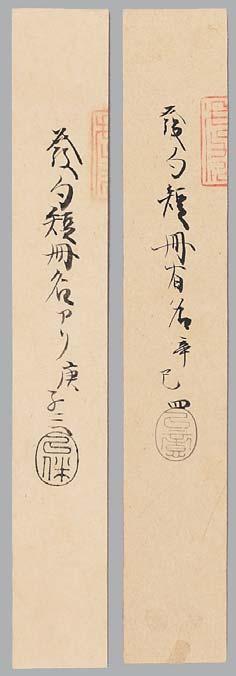 發句短冊有名辛巳四
發句短冊名アリ庚子三